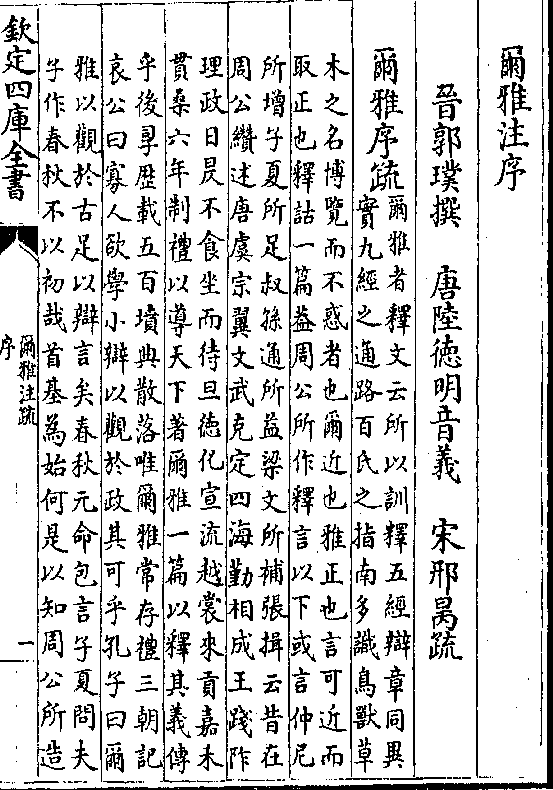 爾雅注序
晉郭璞撰　唐陸德明音義　宋邢昺疏
爾雅序疏
爾雅者釋文云所以訓釋五經辯章同異
實九經之通路百氏之指南多識鳥獸草
木之名博覽而不惑者也爾近也雅正也言可近而
取正也釋詁一篇葢周公所作釋言以下或言仲尼
所增子夏所足叔孫通所益梁文所補張揖云昔在
周公纘述唐虞宗翼文武克定四海勤相成王踐阼
理政日昃不食坐而待旦德化宣流越裳來貢嘉禾
貫桑六年制禮以導天下著爾雅一篇以釋其義傳
乎後㝊歷載五百墳典散落唯爾雅常存禮三朝記
哀公曰寡人欲學小辯以觀於政其可乎孔子曰爾
雅以觀於古足以辯言矣春秋元命包言子夏問夫
子作春秋不以初哉首基為始何是以知周公所造
欽定四庫全書
爾雅注疏
序
一